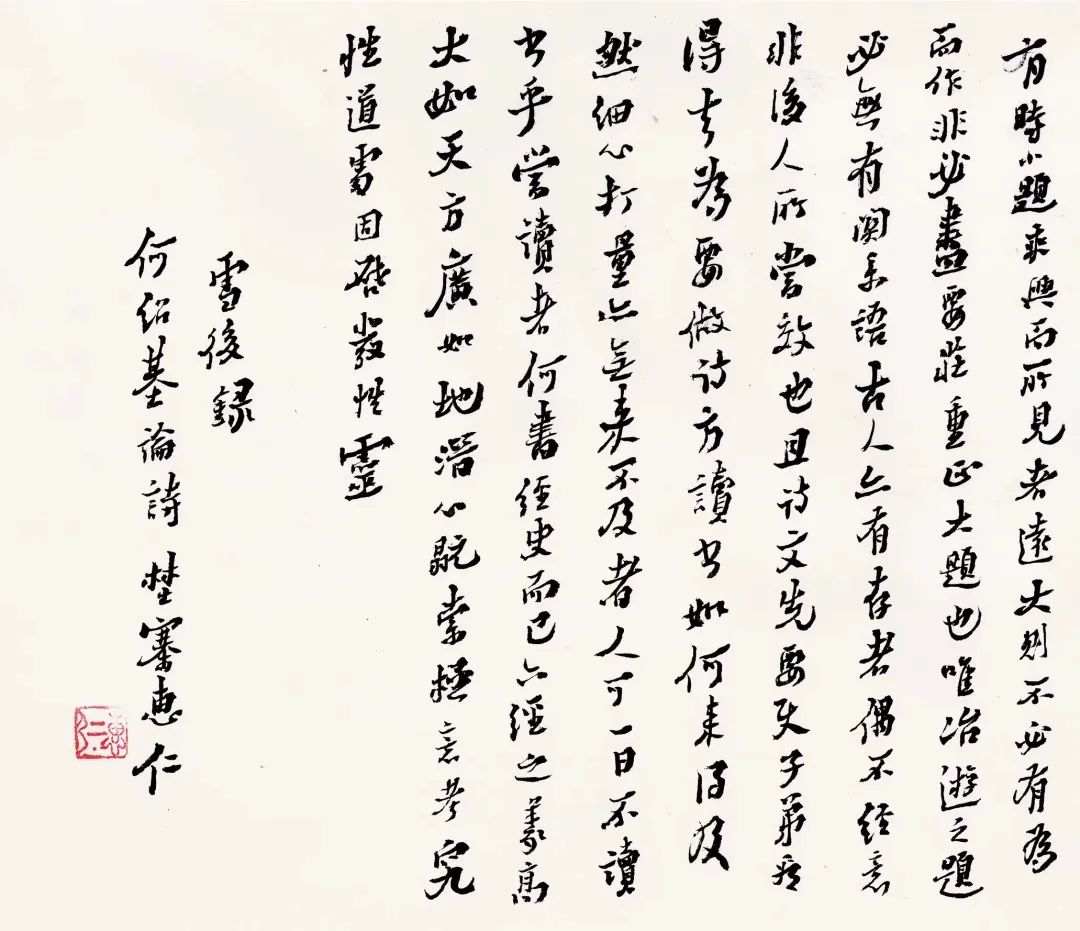 有時小題乘興而所見者遠大則不必有為
而作非必盡要莊重正大題也唯冶遊之題
必無有関系語古人亦有存者偶不經意
非後人所當效也且诗文先要天子弟有
得去為要做诗方讀书如何来得及
然细心打量亦无来不及者人可一日不讀
书乎當讀者何書经史而已六經之義高
大如天方廣如地潛心翫索極意考究
性道處固啟發性靈
雪後錄
何绍基論詩 埜審惠仁
惠仁